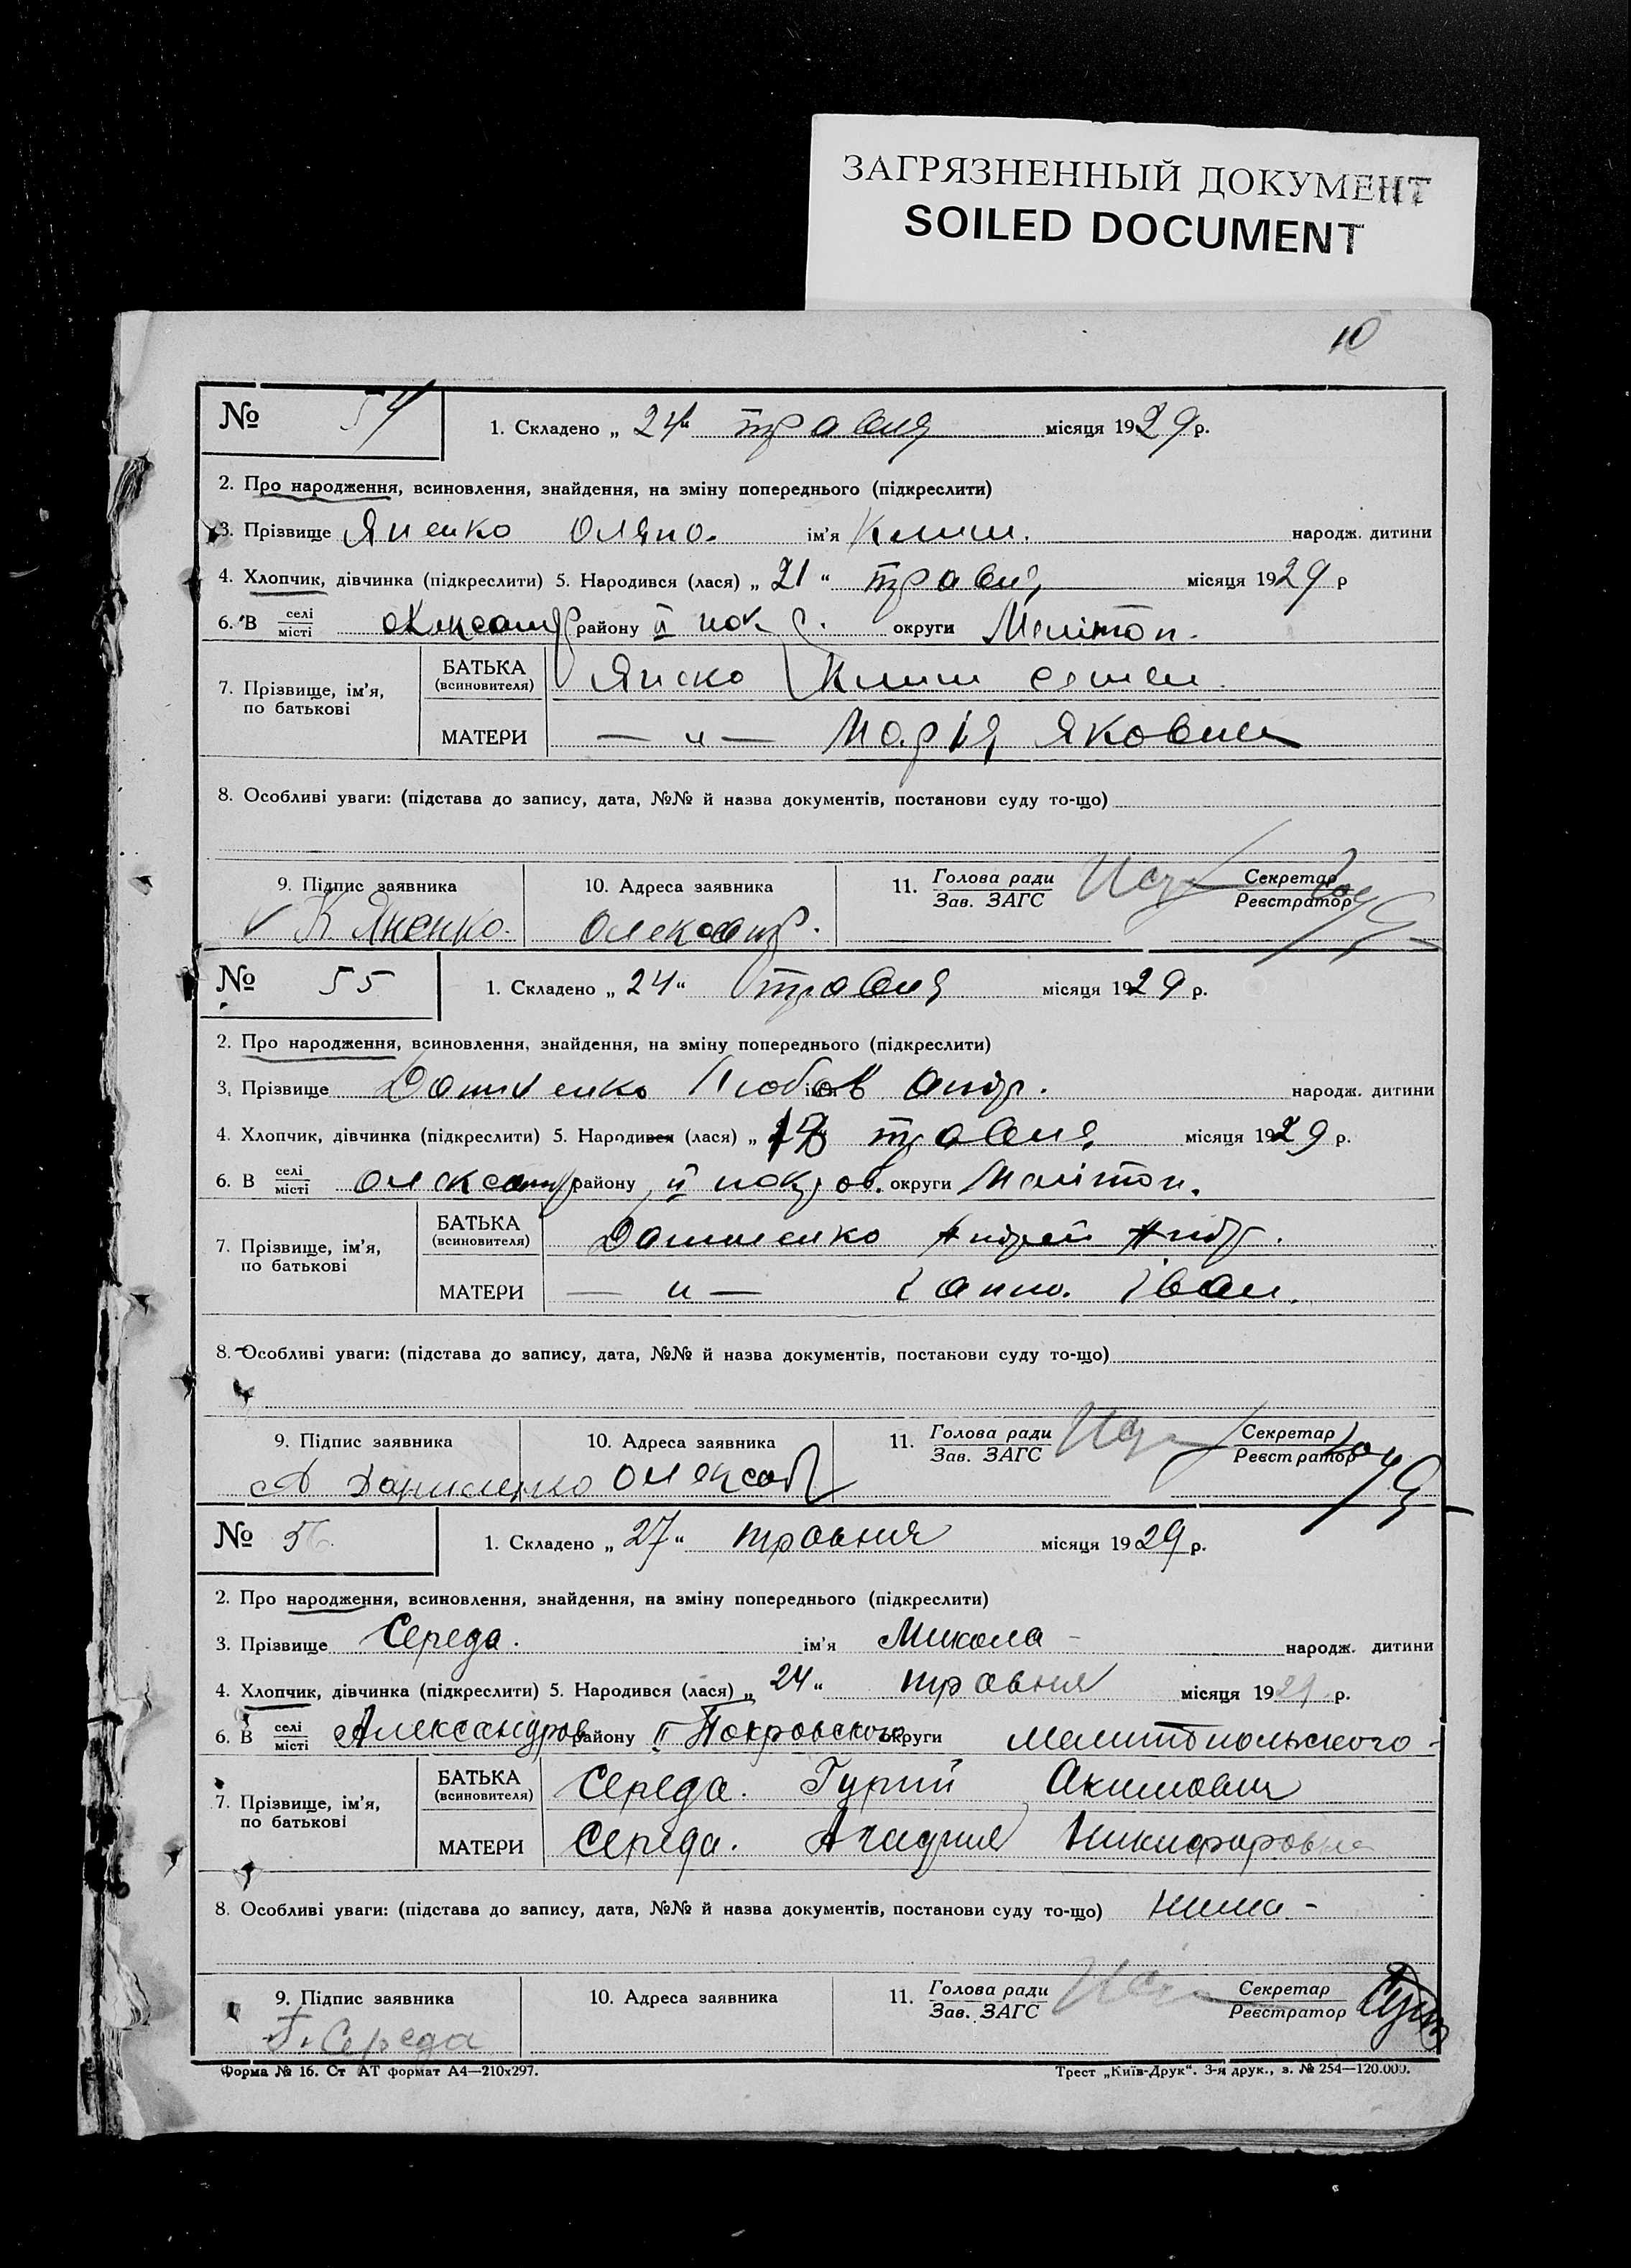 ЗАГРЯЗНЕННЫЙ ДОКУМЕНТ
SOILED DOCUMENT
10
№ 54 1. Складено „ 24 “ травня місяця 1929 р.
2. Про народження, всиновлення, знайдення, на зміну попереднього (підкреслити)
3. Прізвище Яненко ім'я Клим. народж. дитини
4. Хлопчик, дівчинка (підкреслити) 5. Народився (лася) „ 21 “ травня місяця 1929 р
6. В селі/місті району II пок р. округи Мелітоп.
7. Прізвище, ім'я, по батькові
БАТЬКА (всиновителя) Клим
МАТЕРИ — „ — Марія Яковл
8. Особливі уваги: (підстава до запису, дата, №№ й назва документів, постанови суду то-що)
9. Підпис заявника 10. Адреса заявника 11. Голова ради/Зав. ЗАГС Секретар/Реєстратор
К Яненко. Олександр.
№ 55 1. Складено „ 24 “ травня місяця 1929 р.
2. Про народження, всиновлення, знайдення, на зміну попереднього (підкреслити)
3. Прізвище Даниленко Любов Андр. ім'я народж. дитини
4. Хлопчик, дівчинка (підкреслити) 5. Народився (лася) „ травня місяця 1929 р.
6. В селі/місті Олександр району II покров. округи Мелітоп.
7. Прізвище, ім'я, по батькові
БАТЬКА (всиновителя) Даниленко Андрей Андр.
МАТЕРИ — „ — Ганна Іван.
8. Особливі уваги: (підстава до запису, дата, №№ й назва документів, постанови суду то-що)
9. Підпис заявника 10. Адреса заявника 11. Голова ради/Зав. ЗАГС Секретар/Реєстратор
А Даниленко
№ 56 1. Складено „ 27 “ травня місяця 1929 р.
2. Про народження, всиновлення, знайдення, на зміну попереднього (підкреслити)
3. Прізвище Середа. ім'я Микола - народж. дитини
4. Хлопчик, дівчинка (підкреслити) 5. Народився (лася) „ 24 “ травня місяця 1929 р.
6. В селі/місті Александров району II Покровского округи Мелитопольского -
7. Прізвище, ім'я, по батькові
БАТЬКА (всиновителя) Середа. Гурий Акимович
МАТЕРИ Середа. Никифоровна
8. Особливі уваги: (підстава до запису, дата, №№ й назва документів, постанови суду то-що) нима -
9. Підпис заявника 10. Адреса заявника 11. Голова ради/Зав. ЗАГС Секретар/Реєстратор
Г. Середа
Форма № 16. Ст АТ формат А4—210x297. Трест „Київ-Друк“. 3-я друк., з. № 254—120.000.